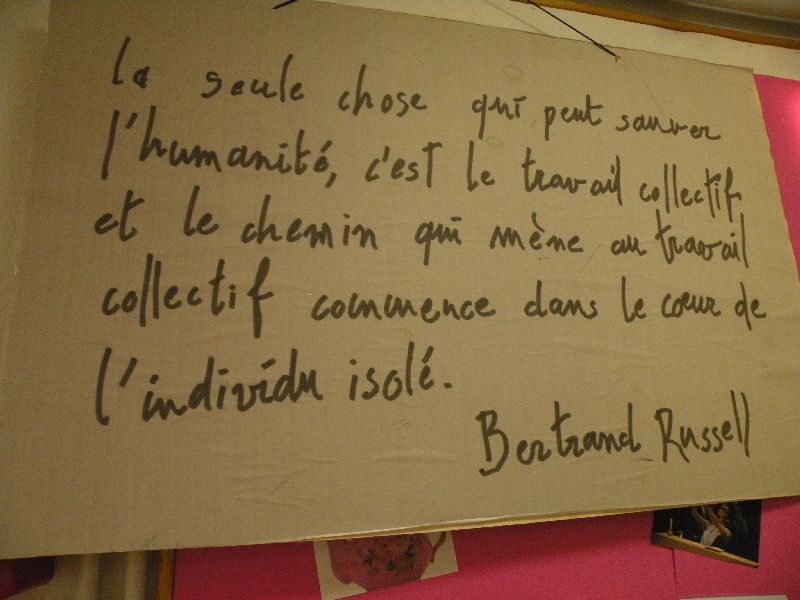 la seule chose qui peut sauver
l'humanité, c'est le travail collectif
et le chemin qui mène au travail
collectif commence dans le cœur de
l'individu isolé.
Bertrand Russell